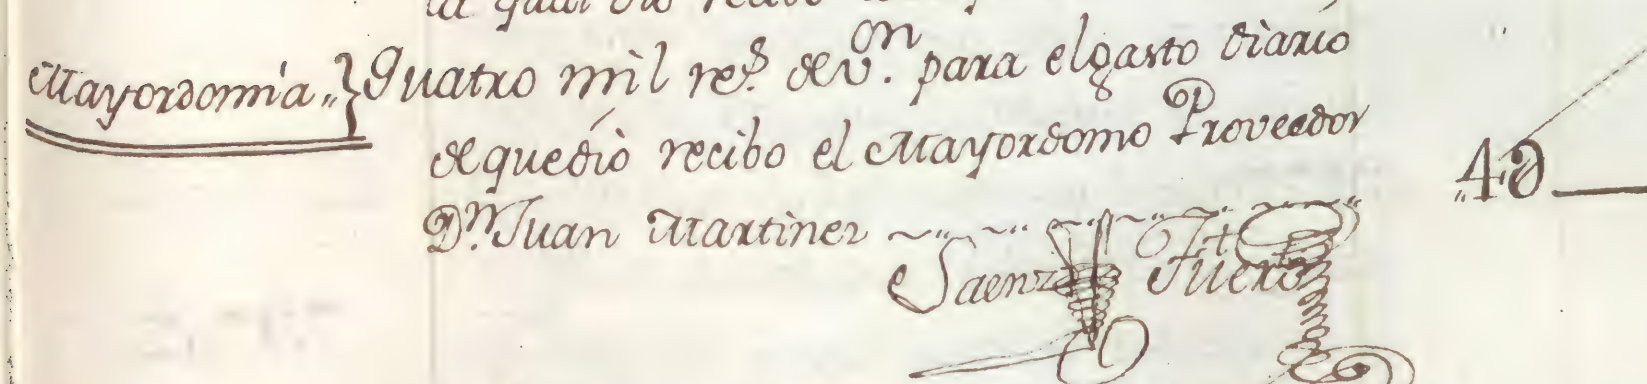 la qual dio recibo
Mayordomía,, } Quatro mil rs. de von. para el gasto diario
de que dió recibo el Mayordomo Proveedor
Dn. Juan Martinez
,,4∂
Saenz Fuero